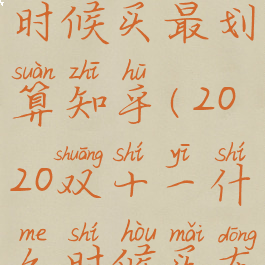 时候买最划
suàn zhī hū
算知乎(20
shuāng shí yī shí
20双十一什
me shí hòu mǎi dōng
么时候买东